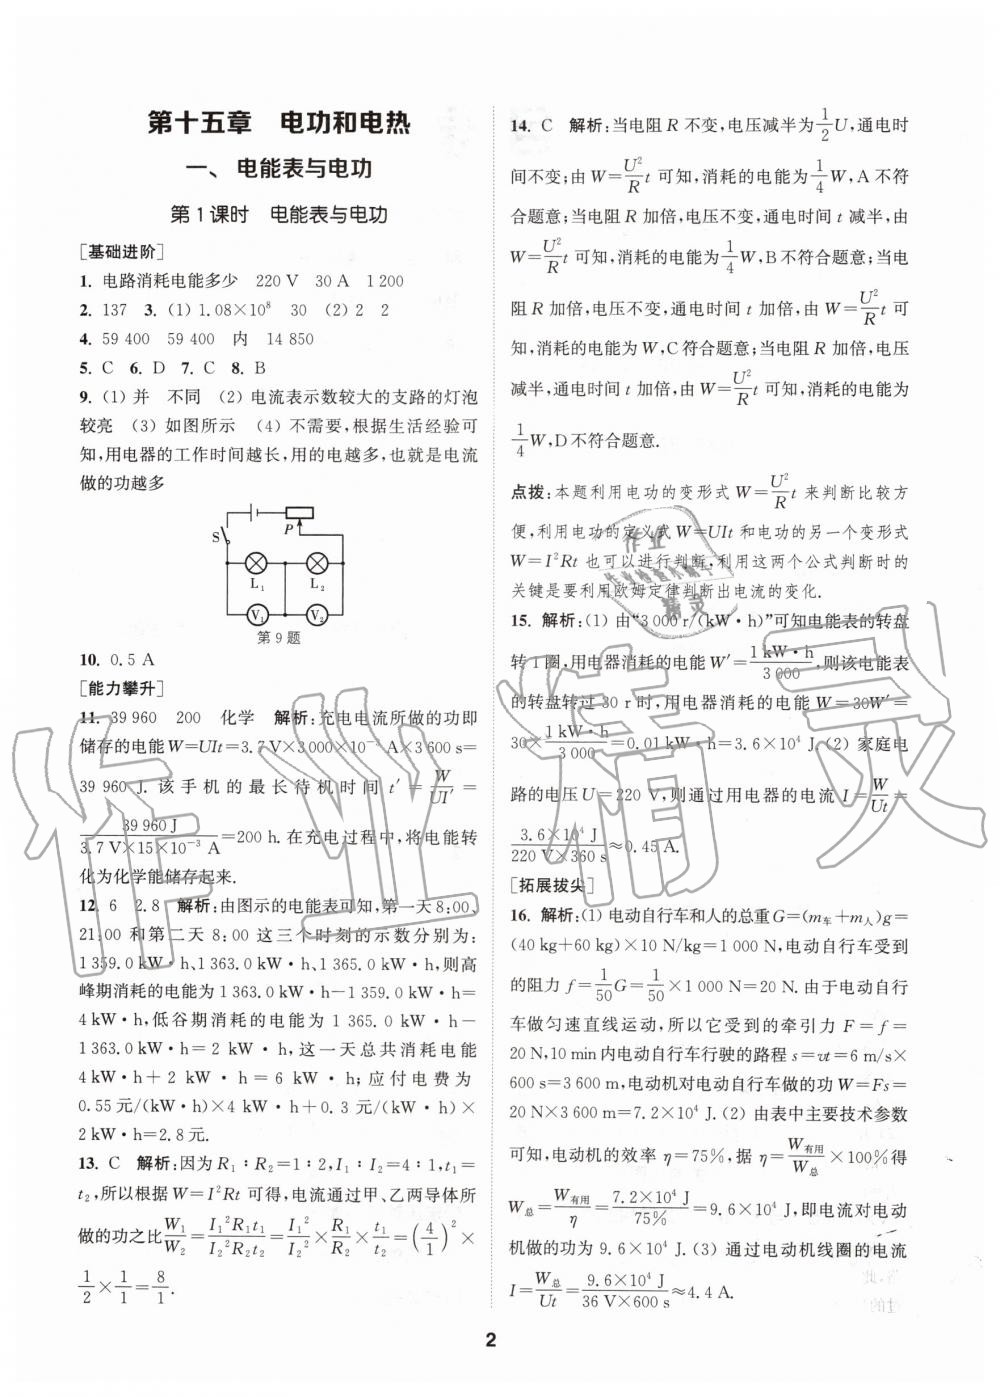 第十五章 电功和电热
一、电能表与电功
第1课时 电能表与电功
[基础进阶]
1. 电路消耗电能多少 220 V 30 A 1 200
2. 137 3. (1) 1.08×10⁸ 30 (2) 2 2
4. 59 400 59 400 内 14 850
5. C 6. D 7. C 8. B
9. (1) 并 不同 (2) 电流表示数较大的支路的灯泡
较亮 (3) 如图所示 (4) 不需要,根据生活经验可
知,用电器的工作时间越长,用的电越多,也就是电流
做的功越多
S P
L₁ L₂
V₁ V₂
第9题
10. 0.5 A
[能力攀升]
11. 39 960 200 化学 解析:充电电流所做的功即
储存的电能W=UIt=3.7 V×3 000×10⁻³ A×3 600 s=
39 960 J. 该手机的最长待机时间 t′=W/UI′=
39 960 J/(3.7 V×15×10⁻³ A)=200 h. 在充电过程中,将电能转
化为化学能储存起来.
12. 6 2.8 解析:由图示的电能表可知,第一天8:00、
21:00和第二天8:00这三个时刻的示数分别为:
1 359.0 kW·h、1 363.0 kW·h、1 365.0 kW·h,则高
峰期消耗的电能为1 363.0 kW·h-1 359.0 kW·h=
4 kW·h,低谷期消耗的电能为1 365.0 kW·h-
1 363.0 kW·h=2 kW·h,这一天总共消耗电能
4 kW·h+2 kW·h=6 kW·h;应付电费为
0.55元/(kW·h)×4 kW·h+0.3元/(kW·h)×
2 kW·h=2.8元.
13. C 解析:因为R₁∶R₂=1∶2,I₁∶I₂=4∶1,t₁=
t₂,所以根据W=I²Rt可得,电流通过甲、乙两导体所
做的功之比W₁/W₂=I₁²R₁t₁/I₂²R₂t₂=I₁²/I₂²×R₁/R₂×t₁/t₂=(4/1)²×
1/2×1/1=8/1.
14. C 解析:当电阻R不变,电压减半为1/2U,通电时
间不变;由W=U²/R t可知,消耗的电能为1/4W,A不符
合题意;当电阻R加倍,电压不变,通电时间t减半,由
W=U²/R t可知,消耗的电能为1/4W,B不符合题意;当电
阻R加倍,电压不变,通电时间t加倍,由W=U²/R t可
知,消耗的电能为W,C符合题意;当电阻R加倍,电压
减半,通电时间t加倍,由W=U²/R t可知,消耗的电能为
1/4W,D不符合题意.
点拨:本题利用电功的变形式W=U²/R t来判断比较方
便,利用电功的定义式W=UIt和电功的另一个变形式
W=I²Rt也可以进行判断,利用这两个公式判断时的
关键是要利用欧姆定律判断出电流的变化.
15. 解析:(1) 由“3 000 r/(kW·h)”可知电能表的转盘
转1圈,用电器消耗的电能W′=1 kW·h/3 000,则该电能表
的转盘转过30 r时,用电器消耗的电能W=30W′=
30×1 kW·h/3 000=0.01 kW·h=3.6×10⁴ J. (2) 家庭电
路的电压U=220 V,则通过用电器的电流I=W/Ut=
3.6×10⁴ J/(220 V×360 s)≈0.45 A.
[拓展拔尖]
16. 解析:(1) 电动自行车和人的总重G=(m车+m人)g=
(40 kg+60 kg)×10 N/kg=1 000 N,电动自行车受到
的阻力f=1/50G=1/50×1 000 N=20 N. 由于电动自行
车做匀速直线运动,所以它受到的牵引力F=f=
20 N,10 min内电动自行车行驶的路程s=vt=6 m/s×
600 s=3 600 m,电动机对电动自行车做的功W=Fs=
20 N×3 600 m=7.2×10⁴ J. (2) 由表中主要技术参数
可知,电动机的效率η=75%,据η=W有用/W总×100%得
W总=W有用/η=7.2×10⁴ J/75%=9.6×10⁴ J,即电流对电动
机做的功为9.6×10⁴ J. (3) 通过电动机线圈的电流
I=W总/Ut=9.6×10⁴ J/(36 V×600 s)≈4.4 A.
2
作业精灵
作业
精灵